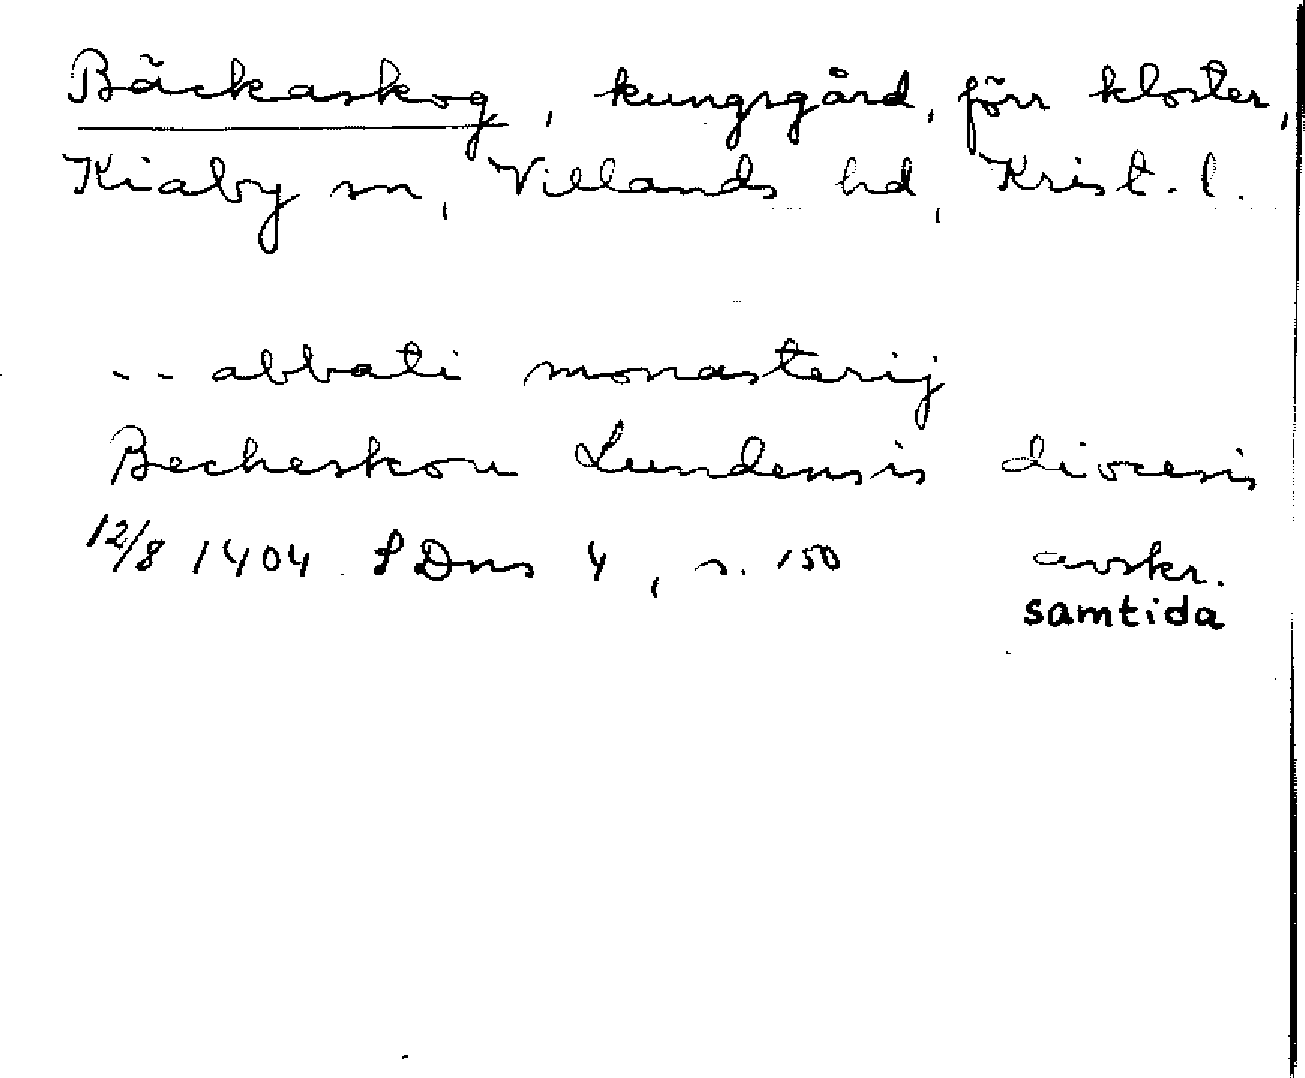 Bäckaskog, kungsgård, förr kloster,
Kiaby sn, Villands hd, Krist. l.
.. abbati monasterij
Becheskou Lundensis diocesis
12/8 1404 SDns 4, s. 150 avskr.
samtida